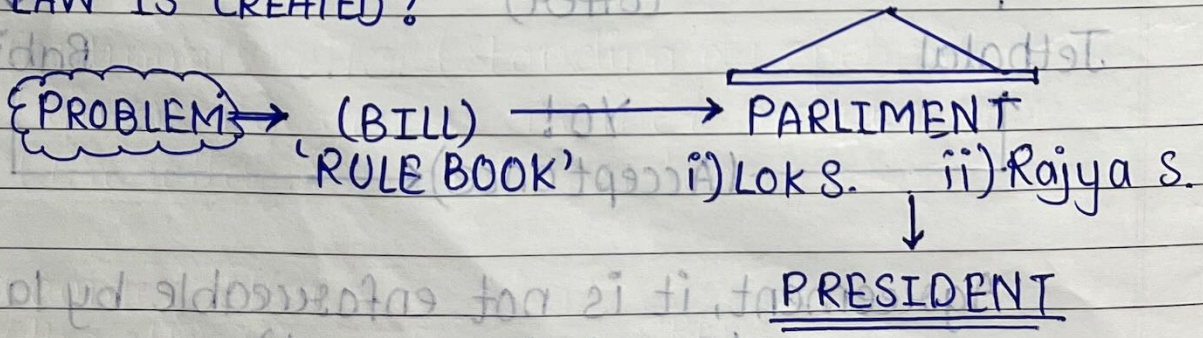 LAW IS CREATED?
PROBLEM → (BILL) → PARLIMENT
'RULE BOOK' i) LOK S. ii) Rajya S.
↓
PRESIDENT